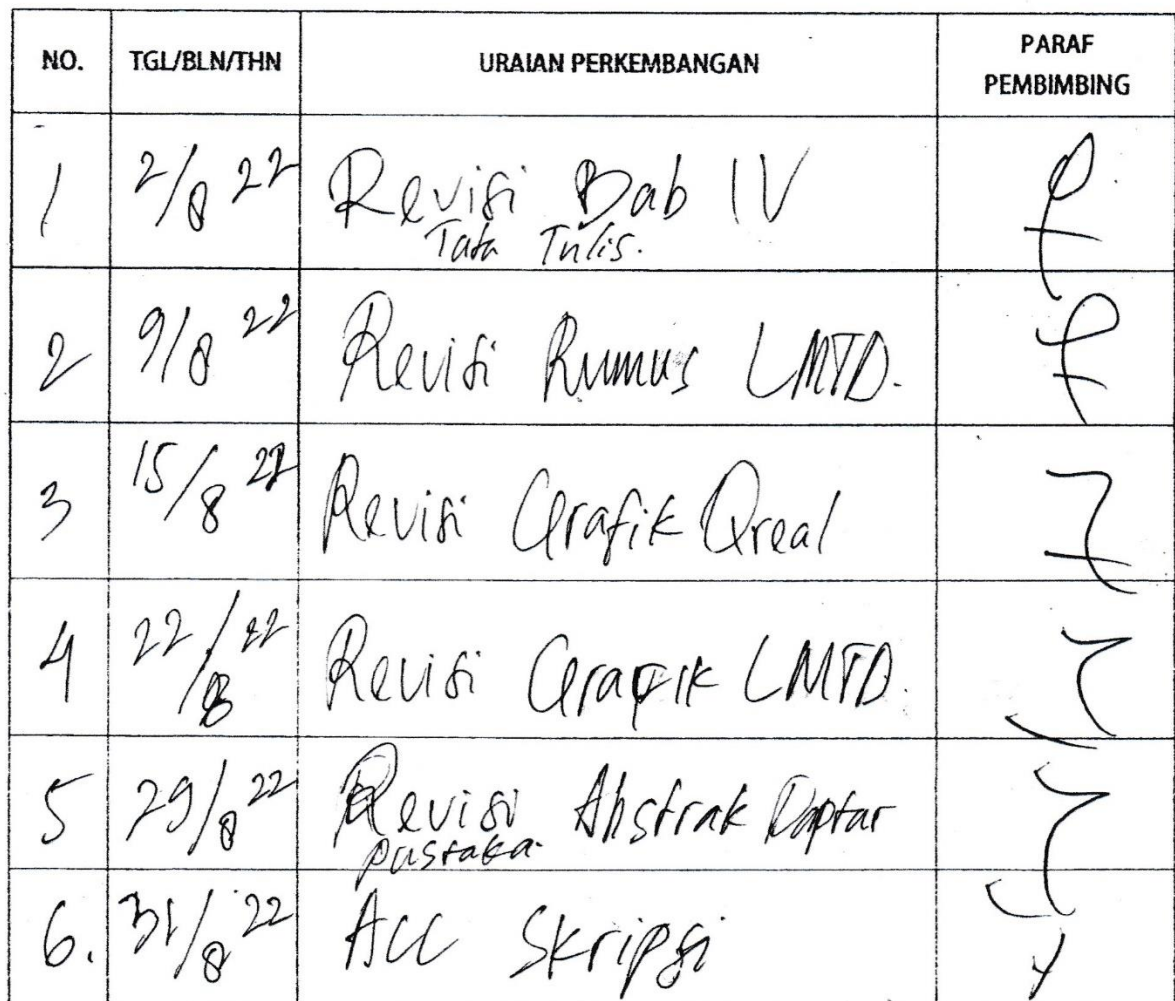 NO. TGL/BLN/THN URAIAN PERKEMBANGAN PARAF PEMBIMBING
1 2/8 22 Revisi Bab IV
Tata Tulis.
2 9/8 22 Revisi Rumus LMTD.
3 15/8 22 Revisi Grafik Qreal
4 22/8 22 Revisi Grafik LMTD.
5 29/8 22 Revisi Abstrak Daptar
pustaka.
6. 31/8 22 ACC Skripsi